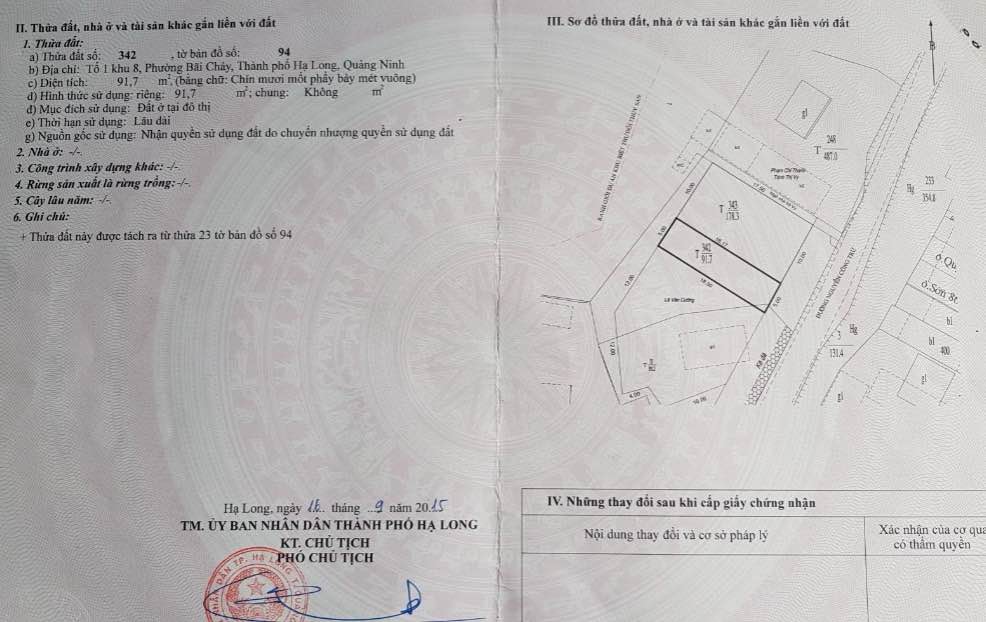 II. Thửa đất, nhà ở và tài sản khác gắn liền với đất
1. Thửa đất:
a) Thửa đất số: 342 , tờ bản đồ số: 94
b) Địa chỉ: Tổ 1 khu 8, Phường Bãi Cháy, Thành phố Hạ Long, Quảng Ninh
c) Diện tích: 91,7 m², (bằng chữ: Chín mươi mốt phẩy bảy mét vuông)
d) Hình thức sử dụng: riêng: 91,7 m²; chung: Không m²
đ) Mục đích sử dụng: Đất ở tại đô thị
e) Thời hạn sử dụng: Lâu dài
g) Nguồn gốc sử dụng: Nhận quyền sử dụng đất do chuyển nhượng quyền sử dụng đất
2. Nhà ở: -/-.
3. Công trình xây dựng khác: -/-.
4. Rừng sản xuất là rừng trồng: -/-.
5. Cây lâu năm: -/-.
6. Ghi chú:
+ Thửa đất này được tách ra từ thửa 23 tờ bản đồ số 94
Hạ Long, ngày tháng 9 năm 2015
TM. ỦY BAN NHÂN DÂN THÀNH PHỐ HẠ LONG
KT. CHỦ TỊCH
PHÓ CHỦ TỊCH
III. Sơ đồ thửa đất, nhà ở và tài sản khác gắn liền với đất
B
gl
T 248
487.0
Phạm Chí Thanh
Hg 253
354.8
17.00
10.00
T 343
178.3
5.00
T 342
91.7
18.30
10.00
5.00
12.00
Lê Văn Cường
ĐƯỜNG NGUYỄN CÔNG TRỨ
ô.Qu
ô.Sơn 8t
bl
bl
400
gl
3 Hg
131.4
gl
12.00
T
6.00
10.00
IV. Những thay đổi sau khi cấp giấy chứng nhận
Nội dung thay đổi và cơ sở pháp lý
Xác nhận của cơ qua
có thẩm quyền